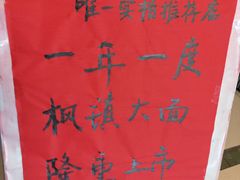 唯一实指推荐店
一年一度
枫镇大面
隆重上市